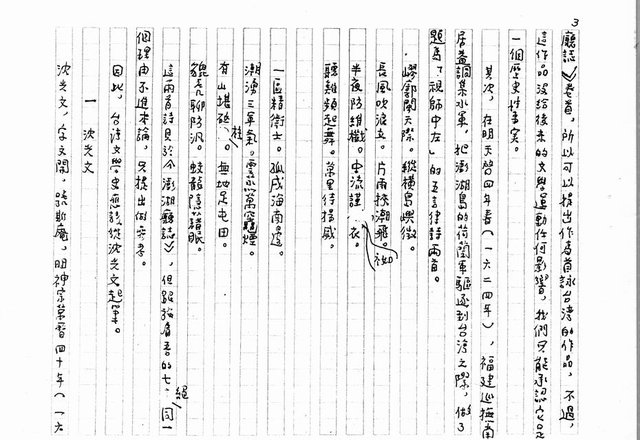 3
廳誌》卷首，所以可以提出作為首詠台湾的作品，不過，
這作品没給後來的文學運動任何影響，我們只能承認它是
一個歷史性事実。
其次，在明天啓四年春（一六二四年），福建巡撫南
居益調集水軍，把澎湖島的荷蘭軍驅逐到台湾之際，做了
題為「視師中左」的五言律詩兩首。
縹緲閩天際。縱橫島嶼微。
長風吹浪立。片雨挾潮飛。
半夜防維檝。中流謹 衣。
袽
聽雞頻起舞。萬里待揚威。
一區精衛士。孤戍海南邊。
潮湧三軍氣。雲蒸萬竈煙。
有山堪砥 。無地足屯田。
柱
貌虎聊防汛。蛟龍隱藉眠。
這兩首詩見於今澎湖廳誌》，但跟施肩吾的七 同一
絕
個理由不進本論，只提出做参考。
因此，台湾文學史應該從沈光文起筆。
一 沈光文
沈光文，字文開，號斯庵，明神宗萬曆四十年（一六